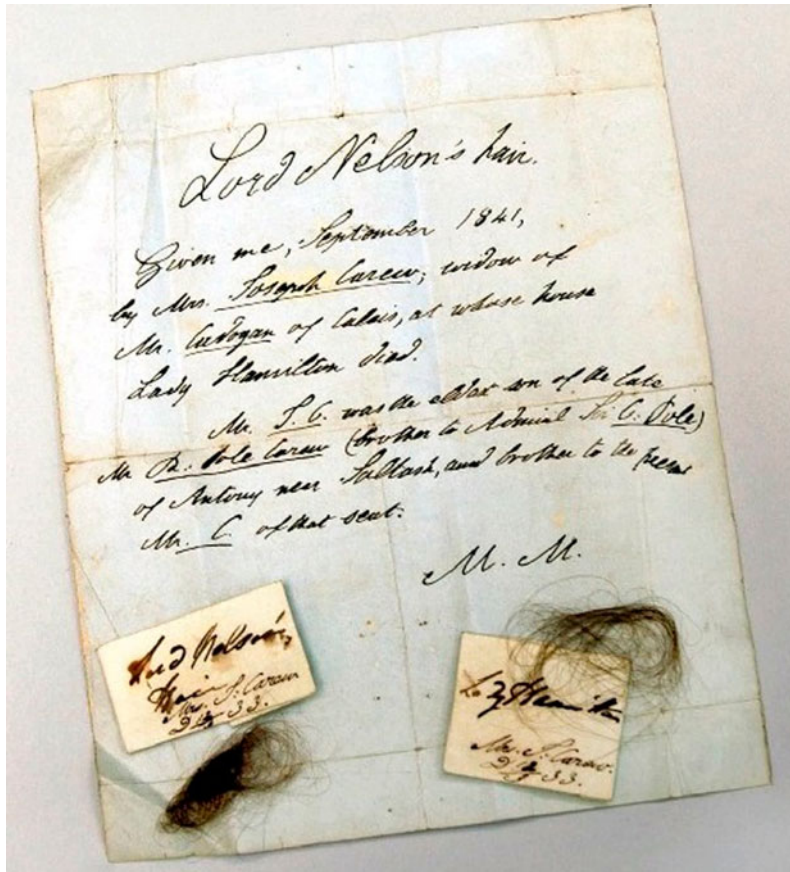 Lord Nelson's hair.
Given me, September 1841,
by Mrs. Joseph Carew; widow of
Mr. Cadogan of Calais, at whose house
Lady Hamilton died.
Mr. J. C. was the elder son of the late
Mr R. Pole Carew (brother to Admiral Sir C. Pole)
of Antony near Saltash, and brother to the present
Mr. C. of that seat.
M. M.
Lord Nelson's
Hair
Mrs. J. Carew
33.
Lady Hamilton
Mrs. J. Carew.
33.